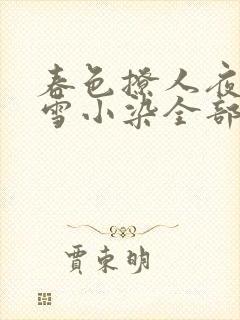 春色撩人夜
雪小染全部
贾东明